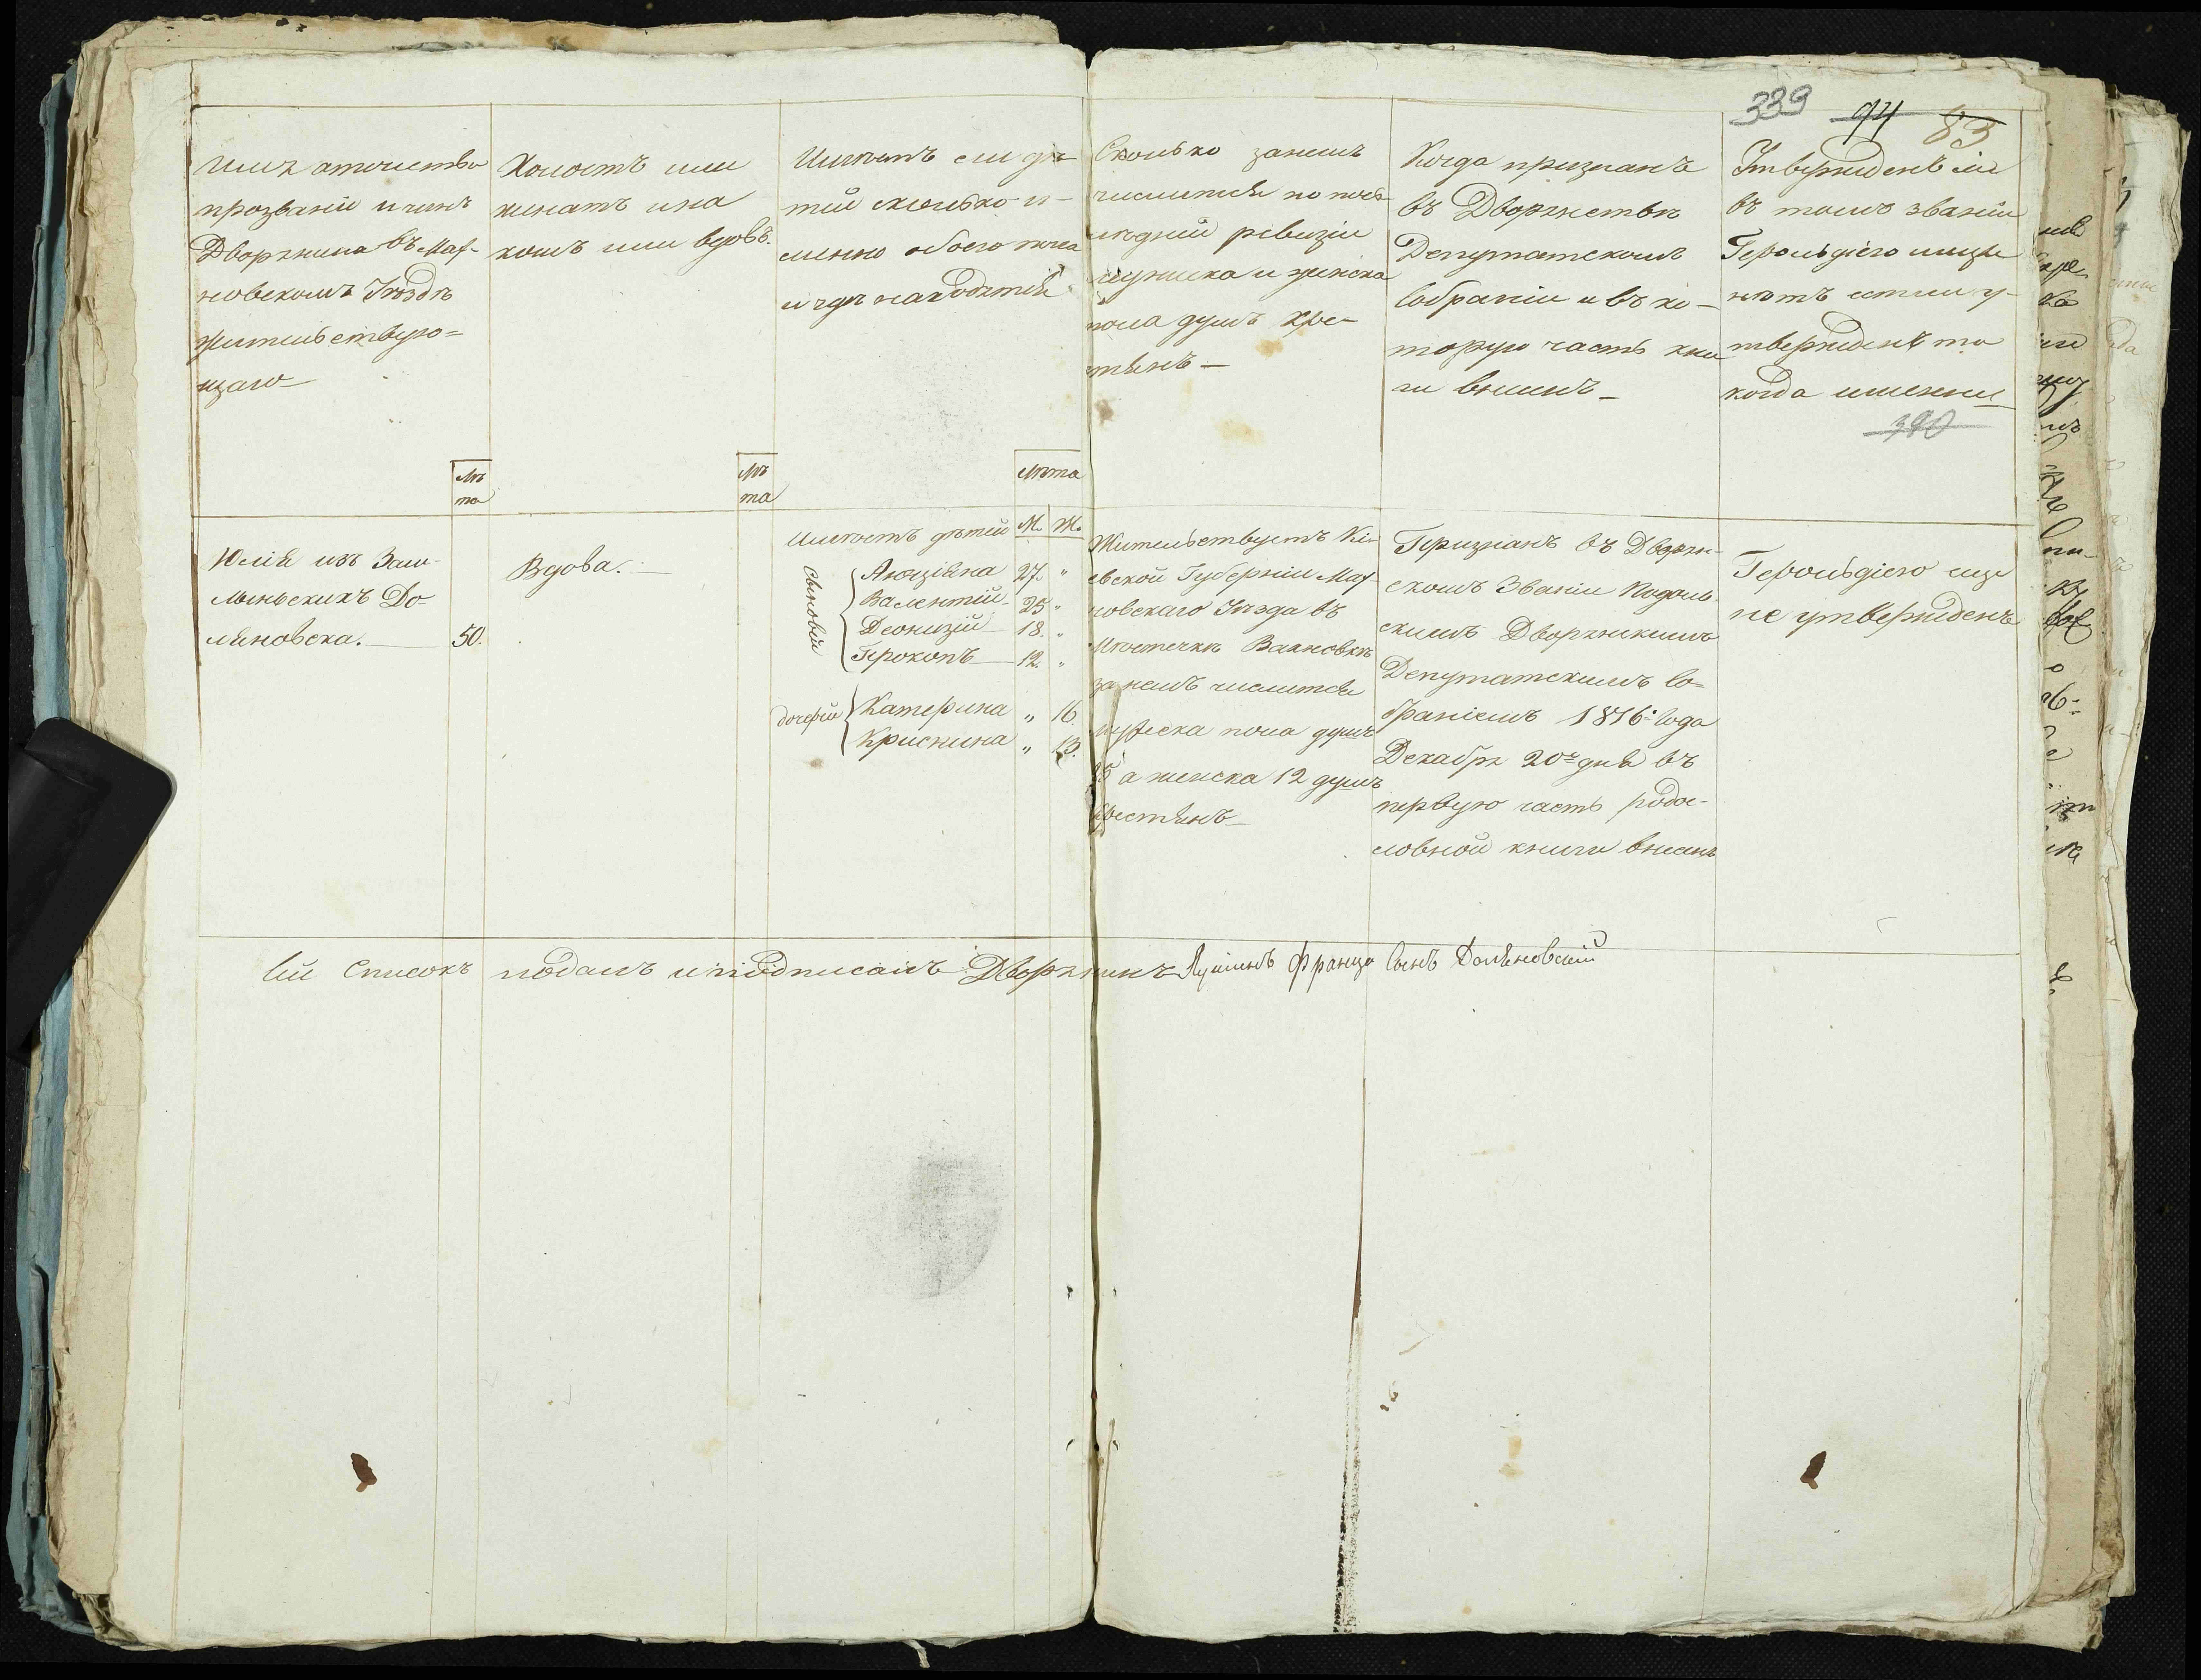 339 94 83
Имя отечество
прозваніе и чинъ
Дворянина въ Мах-
новскомъ Уѣздѣ
жительствую=
щаго
Лѣ
та
Холостъ или
женатъ и на
комъ или вдовъ.
Лѣ
та
Имѣетъ ли дѣ-
тей сколько и-
менно обоего пола
и гдѣ находятся
Лѣта
Сколько занимъ
числится по посъ
лѣдней ревизіи
мужеска и женска
пола душъ кре-
стянъ
Когда признанъ
въ Дворянствѣ
Депутатскомъ
Собраніи и въ ко-
торую часть кни
ги внесенъ
Утвержденъ ли
въ томъ званіи
Герольдіею или
нѣтъ естли у-
твержденъ то
когда именно
390
Юлія изъ Зали-
лѣнскихъ До-
ляновска. 50.
Вдова.
Имѣетъ дѣтей М. Ж.
Сыновей
Люціана 27. "
Валентій 25 "
Деонизій 18. "
Прокопъ 12. "
дочерей
Катерина " 16.
Кристина " 13.
Жительствуетъ Кі-
евской Губерніи Мах-
новскаго Уѣзда въ
Мѣстечкѣ Вахновкѣ
за немъ числится
мужеска пола душъ
15 а женска 12 душъ
крестянъ
Признанъ въ Дворян-
скомъ Званіи Подоль-
скимъ Дворянскимъ
Депутатскимъ Со-
браніемъ 1816 Года
Декабря 20го дня въ
первую часть родос-
ловной книги внесенъ
Герольдіею еще
не утвержденъ
Сей Списокъ подалъ и подписалъ Дворянинъ Луціанъ Франца Сынъ Доляновскій